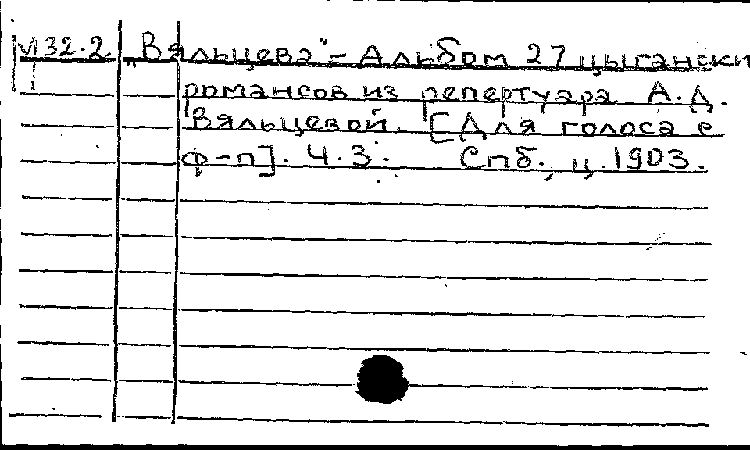 М32.2 "Вяльцева" - Альбом 27 цыгански
романсов из репертуара А.Д.
Вяльцевой. [Для голоса с
ф-п]. Ч.3. Спб., ц. 1903.